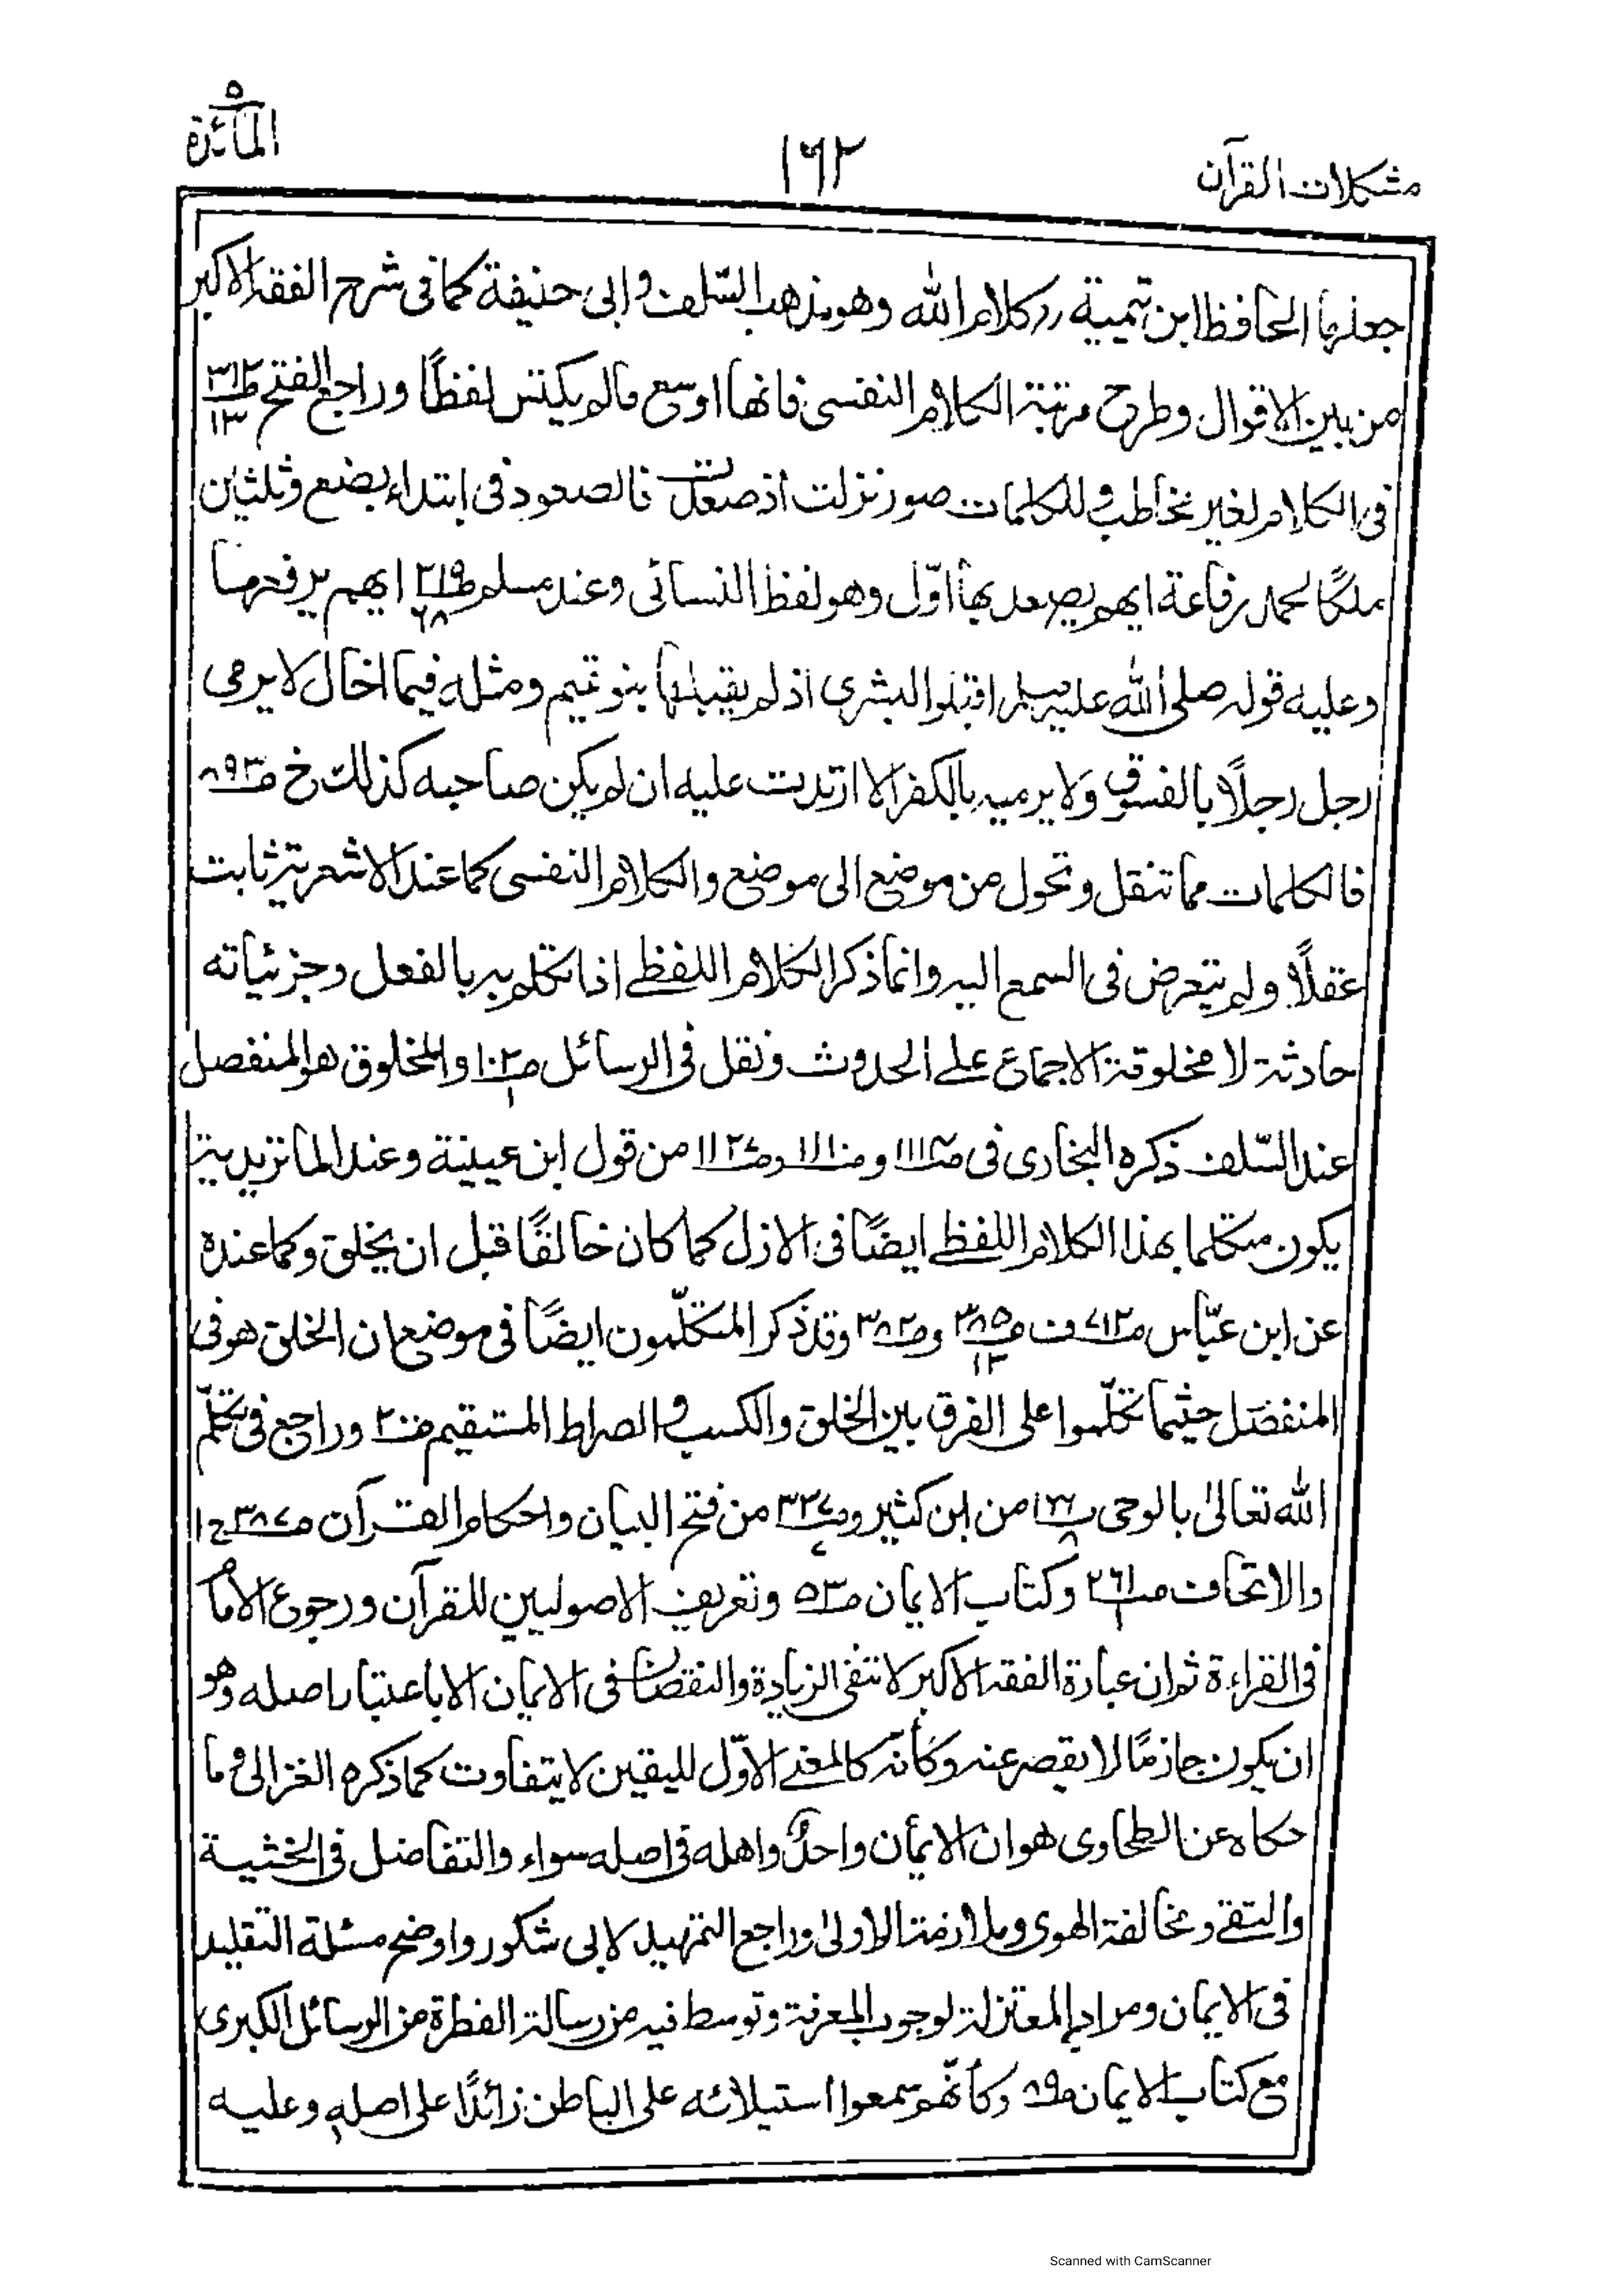 المائدة ٥
١٦٢
مشكلات القرآن
جعلها الحافظ ابن تيمية رر كلام الله وهو مذهب السّلف وابى حنيفة كما فى شرح الفقه الاكبر
من بين الاقوال وطرح مرتبة الكلام النفسى فانها اوسع مالم يكتس لفظًا وراجع الفتح
فى الكلام لغير مخاطب وللكلمات صور نزلت اذ صعدت فالصعود فى ابتداء بضع وثلثين
ملكًا لحمد رفاعة ايهم يصعد بها اوّل وهو لفظ النسائى وعند مسلم ص٢١٩ ايهم يرفعها
وعليه قوله صلى الله عليه وسلم اقبلوا البشرى اذ لم يقبلها بنو تميم ومثله فيما اخال لا يرمى
رجل رجلًا بالفسوق ولا يرميه بالكفر الا ارتدت عليه ان لم يكن صاحبه كذلك خ ص٨٩٣
فالكلمات مما تنقل وتحول من موضع الى موضع والكلام النفسى كما عند الاشعرية ثابت
عقلًا ولم يتعرض فى السمع اليه وانما ذكر الكلام اللفظى اذا تكلم به بالفعل وجزئياته
حادثة لا مخلوقة الاجماع على الحدوث ونقل فى الرسائل ص١٠٢ والمخلوق هو المنفصل
عند السّلف ذكره البخارى فى و ص١١١٠ و ص١١٢٧ من قول ابن عيينة وعند الماتريدية
يكون متكلما بهذا الكلام اللفظى ايضًا فى الازل كما كان خالقًا قبل ان يخلق وكما عنده
عن ابن عبّاس ص٧١٢ ف ص٣٨٥/١٣ و ص٣٨٢ وقد ذكر المتكلّمون ايضًا فى موضع ان الخلق هو فى
المنفصل حيثما تكلّموا على الفرق بين الخلق والكسب والصراط المستقيم وراجع فى تكلّم
الله تعالىٰ بالوحى من ابن كثير و من فتح البيان واحكام القرآن ص٣٨٧ ج١
والاتحاف وكتاب الايمان ص٥٣ وتعريف الاصوليين للقرآن ورجوع الامام
فى القراءة ثم ان عبارة الفقه الاكبر لا تنفى الزيادة والنقصان فى الايمان الا باعتبار اصله وهو
ان يكون جازمًا لا يقصر عنه وكأنه كالمعنى الاوّل لليقين لا يتفاوت كما ذكره الغزالى وما
حكاه عن الطحاوى هو ان الايمان واحدٌ واهله فى اصله سواء والتفاضل فى الخشية
والتقى ومخالفة الهوى وملازمة الاولىٰ وراجع التمهيد لابى شكور واوضح مسئلة التقليد
فى الايمان ومراد المعتزلة لوجوب المعرفة وتوسط فيه من رسالة الفطرة من الرسائل الكبرى
مع كتاب الايمان ص٨٩ وكأنّهم سمعوا استيلائه على الباطن زائدًا على اصله وعليه
Scanned with CamScanner